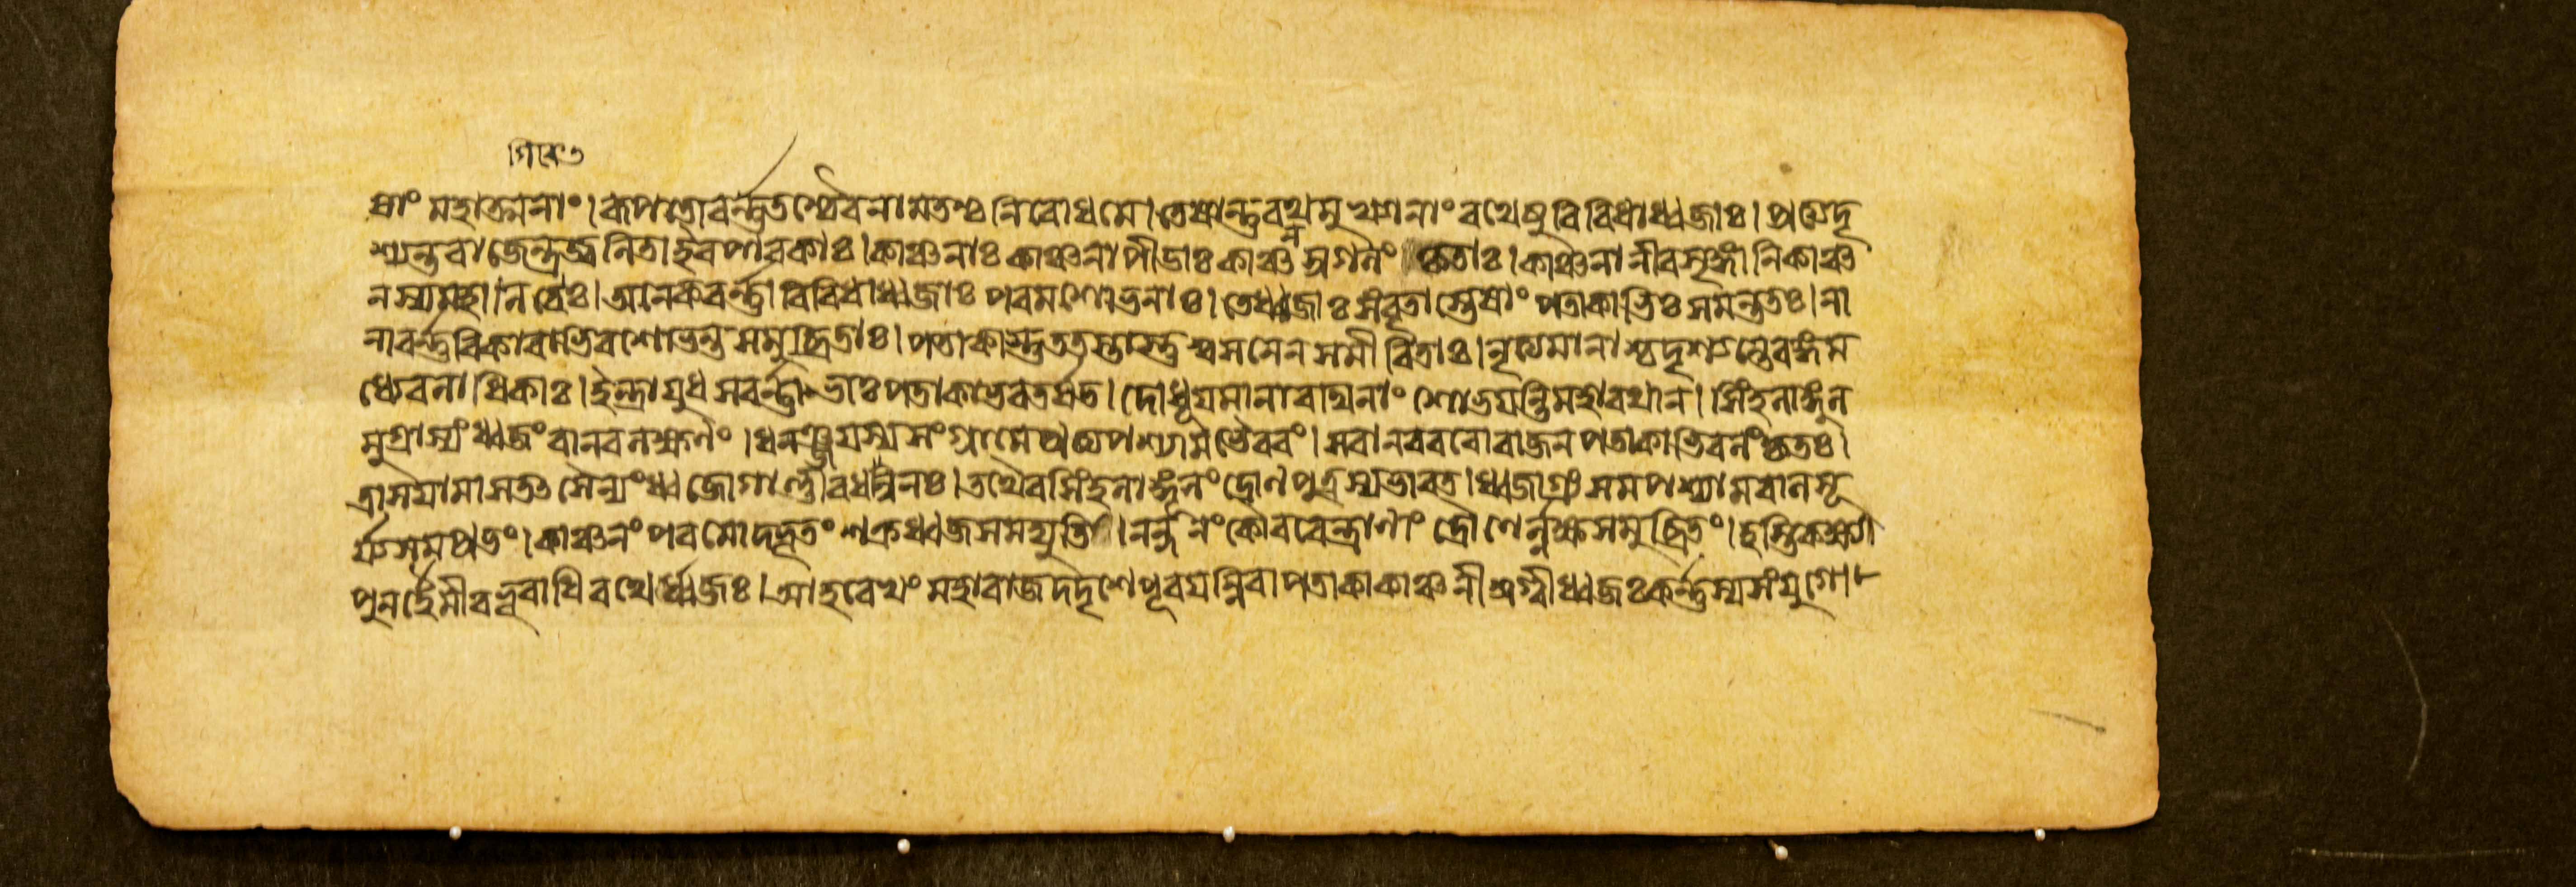 গিরেঃ ৩
ষাং মহাত্মনাং। রূপতো বর্ন্নতশ্চৈব নামতশ্চ নিবোধ মে। তেষান্তু রথমুখ্যানাং রথেষু বিবিধা ধ্বজাঃ। প্রত্যদৃ
শ্যন্ত রাজেন্দ্র জ্বলিতা ইব পাবকাঃ। কাঞ্চনাঃ কাঞ্চনাপীডাঃ কাঞ্চনস্রগলংকৃতাঃ। কাঞ্চনানীব শৃঙ্গানি কাঞ্চ
নস্য মহাগিরেঃ। অনেকবর্ন্না বিবিধা ধ্বজাঃ পরমশোভনাঃ। তে ধ্বজাঃ সংবৃতাস্তেষাং পতাকাভিঃ সমন্ততঃ। না
নাবর্ন্নবিকারাভির্বশোভন্ত সমুচ্ছ্রিতাঃ। পতাকাস্তু ততস্তাস্তু শ্বসনেন সমীরিতাঃ। নৃত্যমানাশ্চ দৃশ্যন্তে রঙ্গম
ধ্যে বলাধিকাঃ। ইন্দ্রায়ুধসবর্ন্নাভাঃ পতাকা ভরতর্ষভ। দোধূয়মানা রাথিনাং শোভয়ন্তি মহারথান। সিংহলাঙ্গুল
মুগ্রাস্যং ধ্বজং বানরলক্ষণং। ধনঞ্জয়স্য সংগ্রামে প্রত্যপশ্যাম ভৈরবং। স বানরবরো রাজন পতাকাভিরলংকৃতঃ।
ত্রাসয়ামাস তৎ সৈন্যং ধ্বজো গাণ্ডীবধন্বিনঃ। তথৈব সিংহলাঙ্গূলং দ্রোণপুত্রস্য ভারত। ধ্বজাগ্রং সমপশ্যাম বালসূ
র্য্যসমপ্রভং। কাঞ্চনং পরমোদ্ধূতং শক্রধ্বজসমদ্যুতি। নর্ন্দনং কৌরবেন্দ্রাণাং দ্রৌণের্ল্লক্ষ্মসমুচ্ছ্রিতং। হস্তিকক্ষ্যা
পুনর্হৈমী বভূবাধিরথের্ধ্বজঃ। আহবে খং মহারাজ দদৃশে পূরয়ন্নিব। পতাকা কাঞ্চনী স্রগ্বী ধ্বজঃ কর্ন্নস্য সংযুগে।